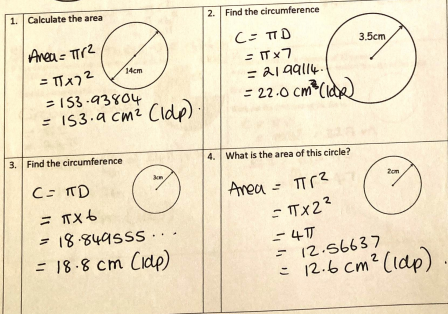 1. Calculate the area
14cm
Area = πr²
= π×7²
= 153.93804
= 153.9 cm² (1dp).
2. Find the circumference
3.5cm
C = πD
= π×7
= 21.99114.
= 22.0 cm (1dp)
3. Find the circumference
3cm
C = πD
= π×6
= 18.849555...
= 18.8 cm (1dp)
4. What is the area of this circle?
2cm
Area = πr²
= π×2²
= 4π
= 12.56637
= 12.6 cm² (1dp).